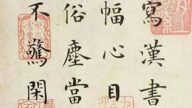 寫漢書
幅心目
俗塵當
不驚閑